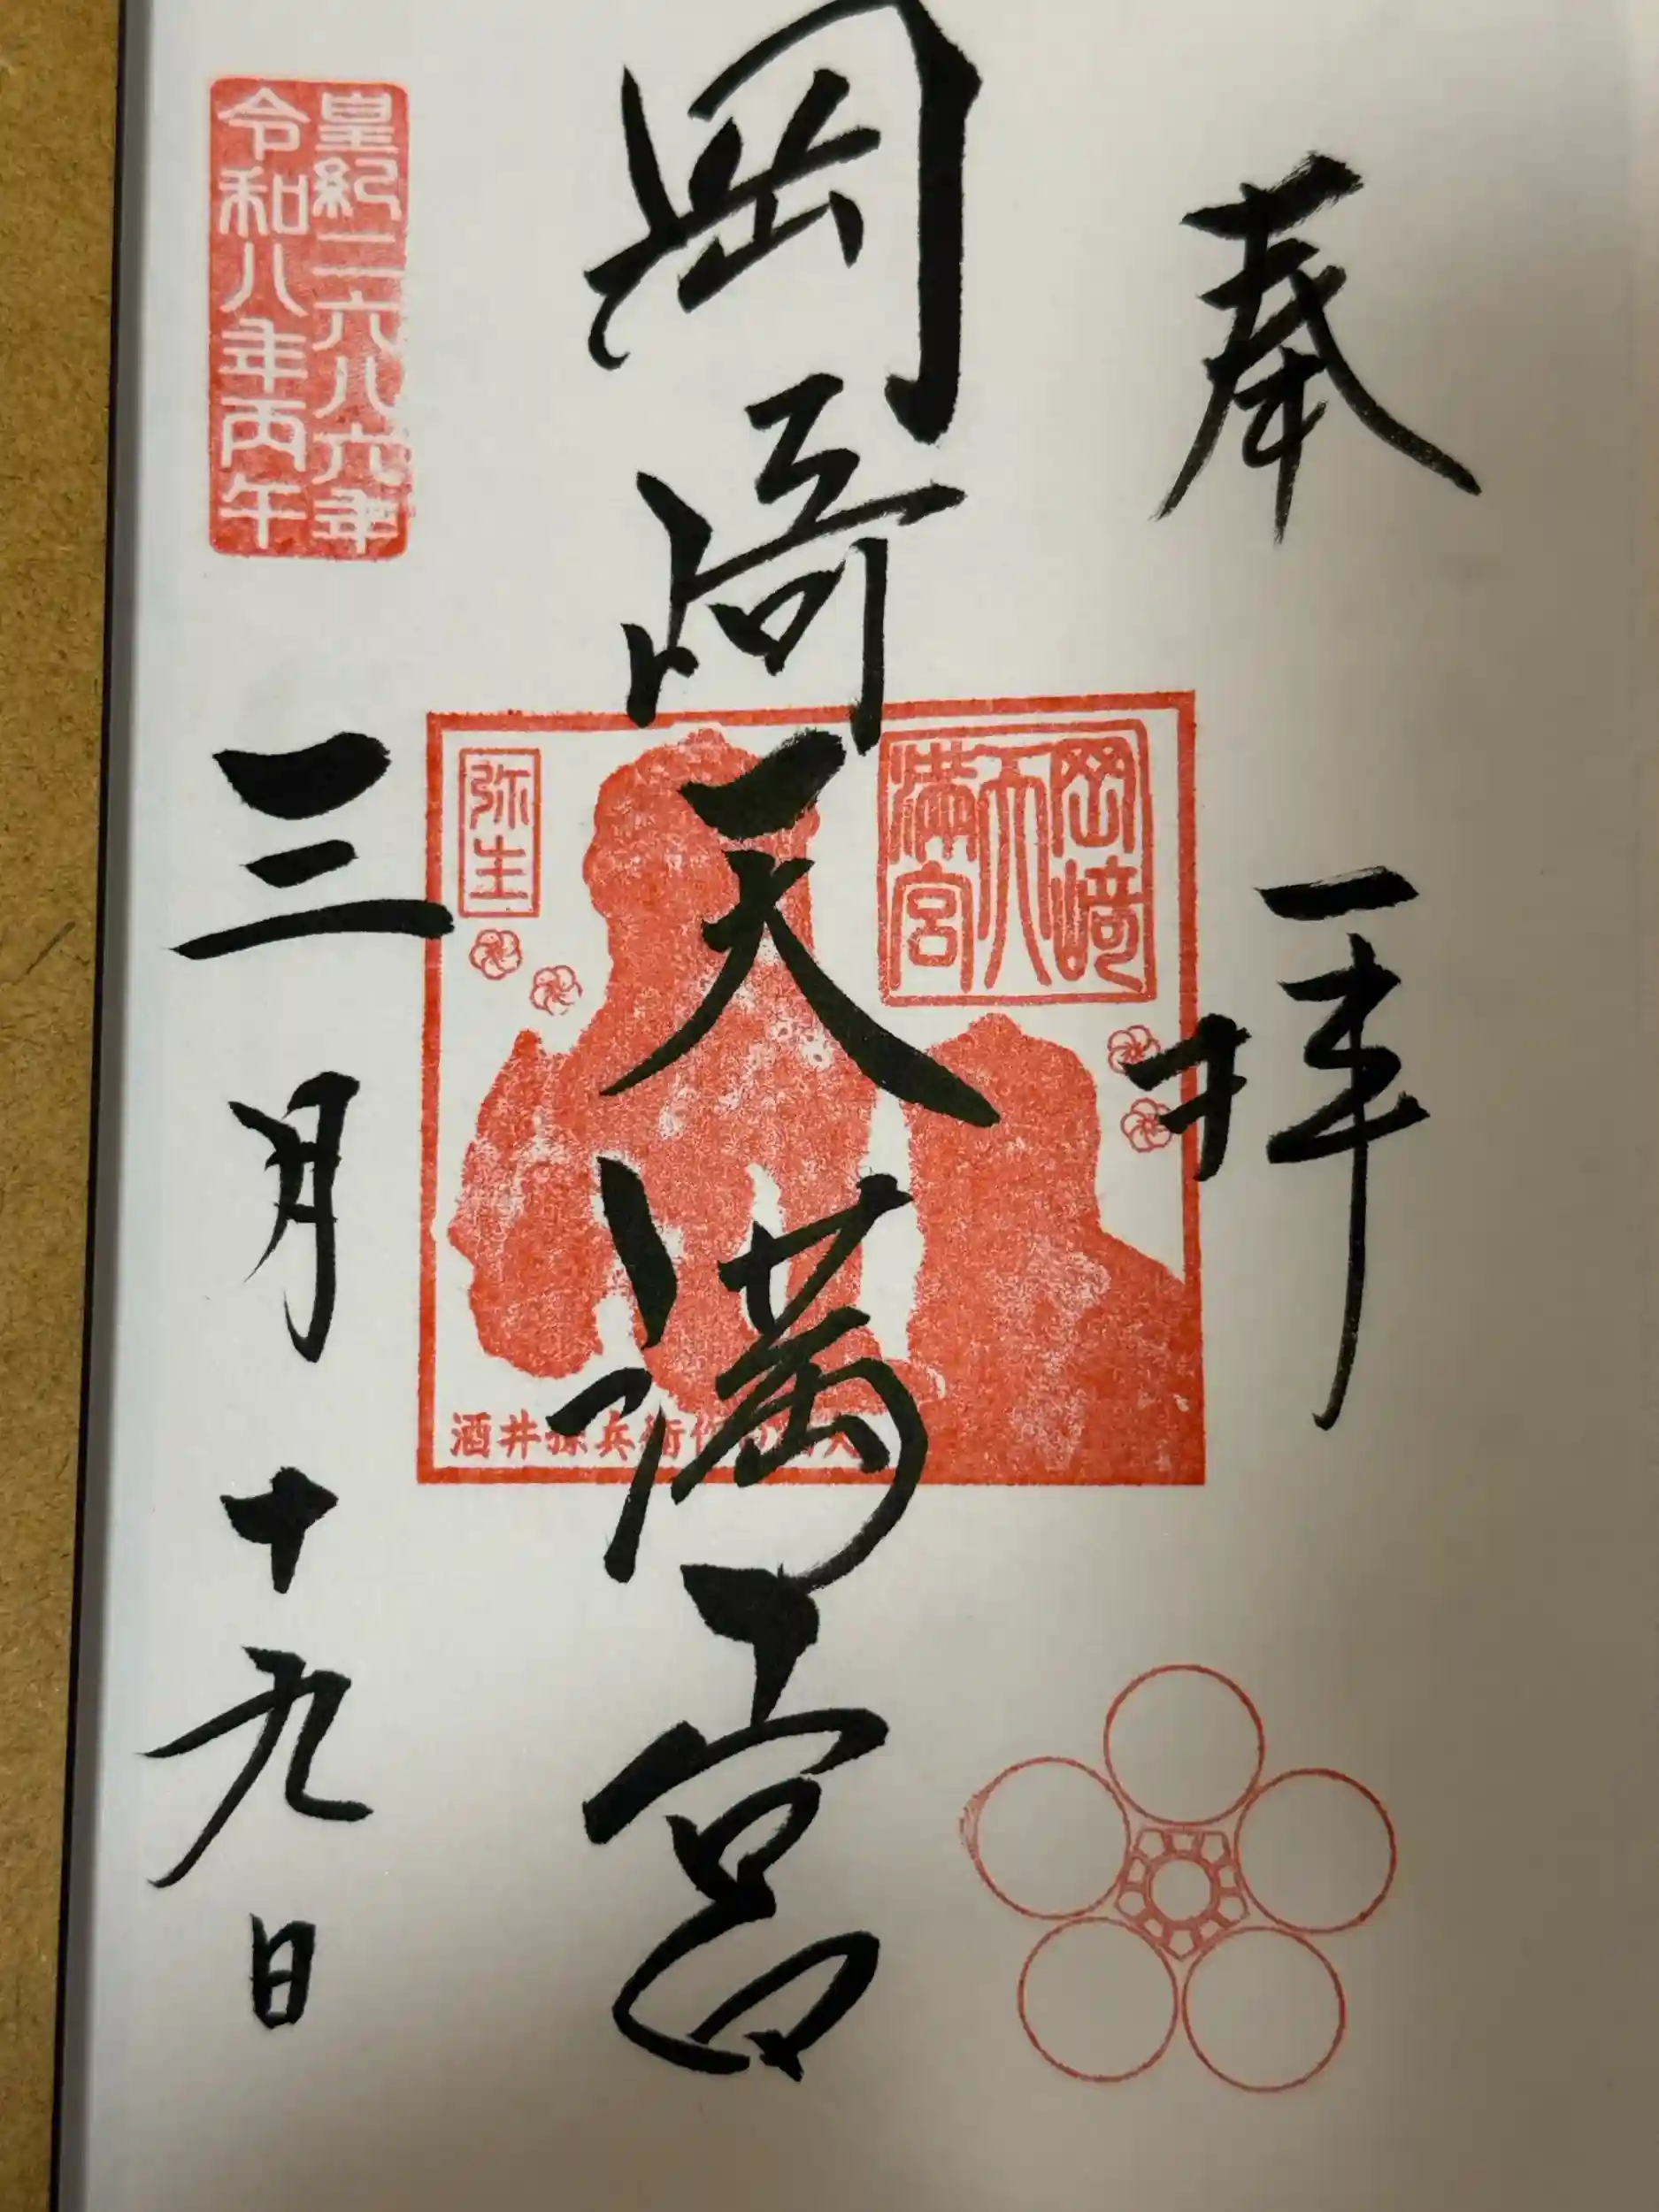 奉拝
岡崎天満宮
岡﨑
天
満宮
弥生
酒井孫兵衛作
皇紀二六八六年
令和八年丙午
三月十九日